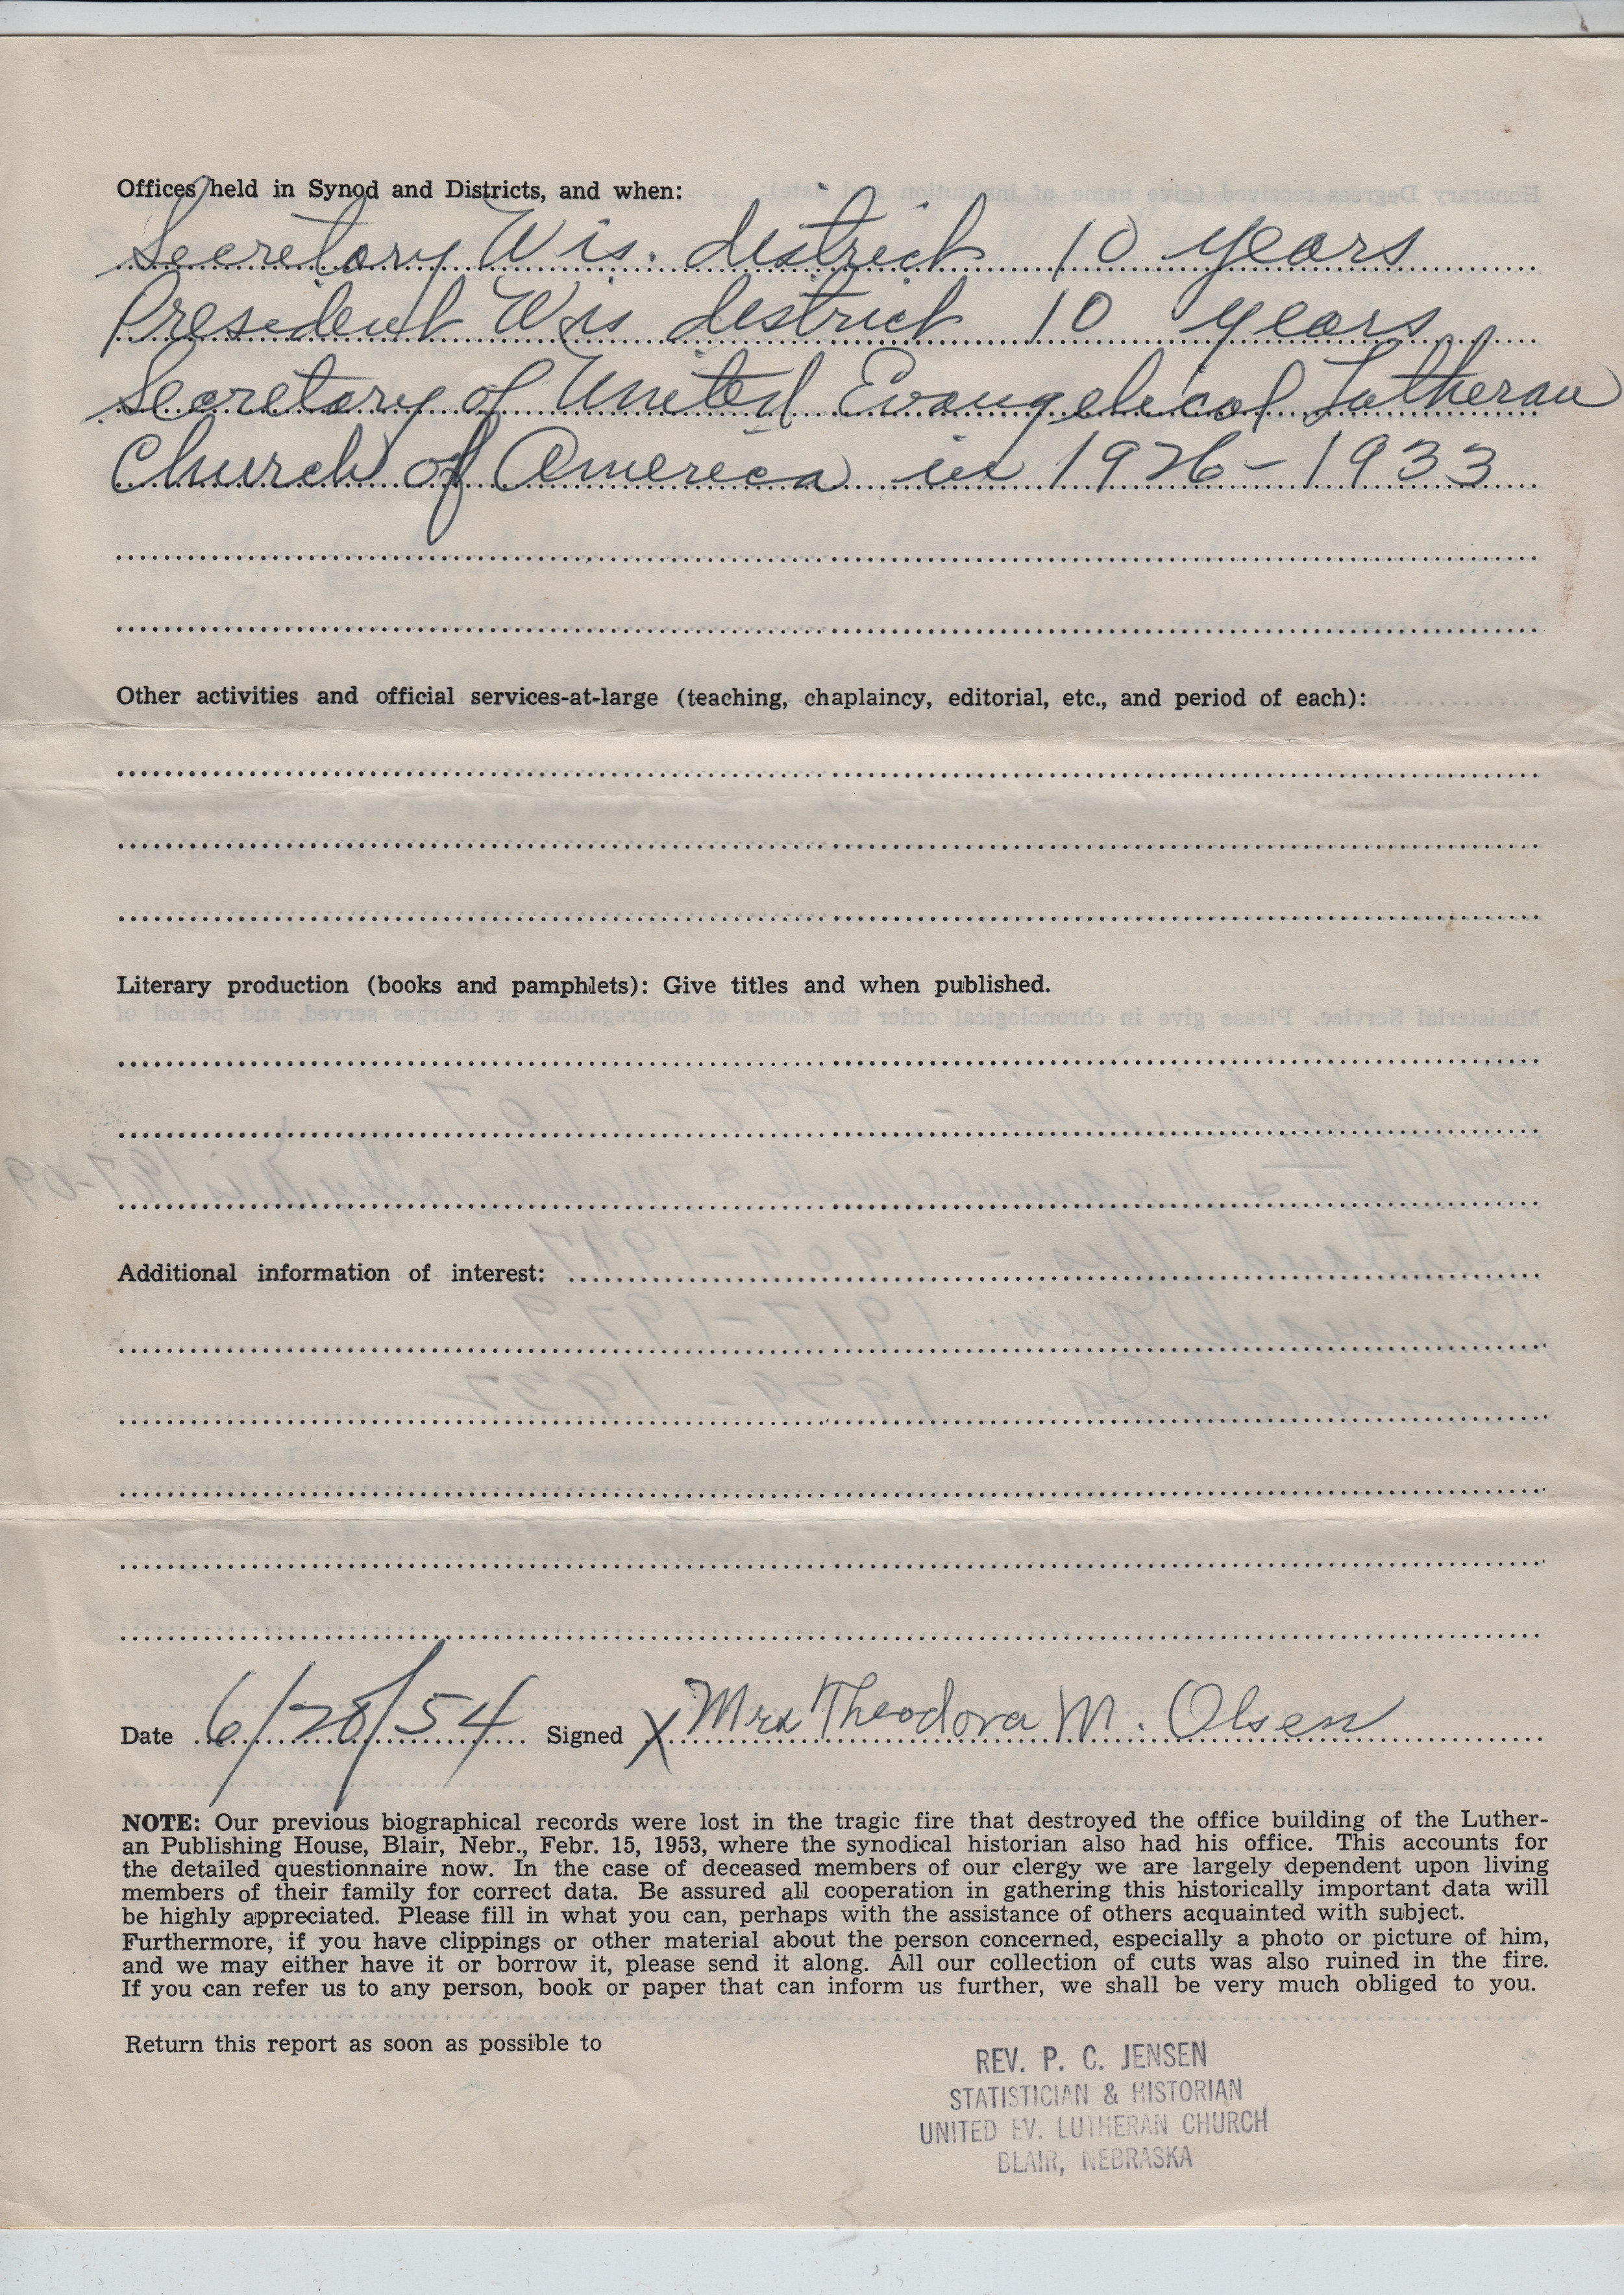 Offices held in Synod and Districts, and when:
Secretary Wis. district 10 years
President Wis district 10 years
Secretary of United Evangelical Lutheran
Church of America in 1926-1933
Other activities and official services-at-large (teaching, chaplaincy, editorial, etc., and period of each):
Literary production (books and pamphlets): Give titles and when published.
Additional information of interest:
Date 6/28/54 Signed X Mrs Theodora M. Olsen
NOTE: Our previous biographical records were lost in the tragic fire that destroyed the office building of the Luther-
an Publishing House, Blair, Nebr., Febr. 15, 1953, where the synodical historian also had his office. This accounts for
the detailed questionnaire now. In the case of deceased members of our clergy we are largely dependent upon living
members of their family for correct data. Be assured all cooperation in gathering this historically important data will
be highly appreciated. Please fill in what you can, perhaps with the assistance of others acquainted with subject.
Furthermore, if you have clippings or other material about the person concerned, especially a photo or picture of him,
and we may either have it or borrow it, please send it along. All our collection of cuts was also ruined in the fire.
If you can refer us to any person, book or paper that can inform us further, we shall be very much obliged to you.
Return this report as soon as possible to
REV. P. C. JENSEN
STATISTICIAN & HISTORIAN
UNITED EV. LUTHERAN CHURCH
BLAIR, NEBRASKA